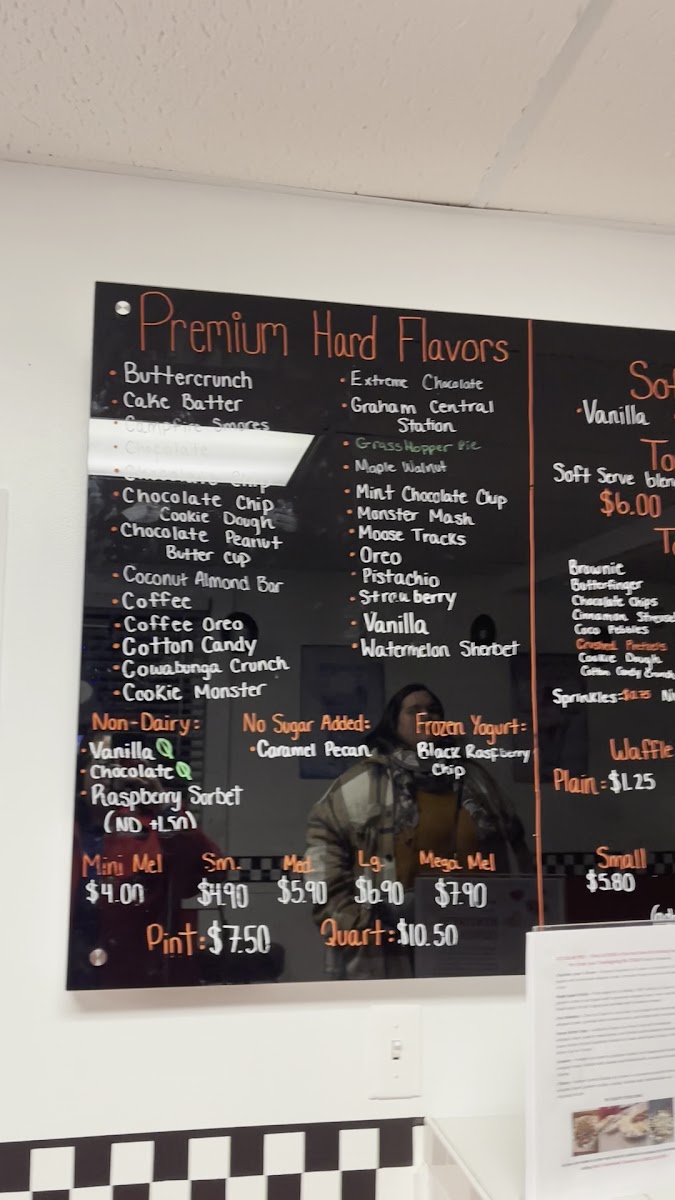 Premium Hard Flavors
• Buttercrunch
• Cake Batter
• Campfire Smores
• Chocolate
• Chocolate Chip
• Chocolate Chip
Cookie Dough
• Chocolate Peanut
Butter Cup
• Coconut Almond Bar
• Coffee
• Coffee Oreo
• Cotton Candy
• Cowabunga Crunch
• Cookie Monster
• Extreme Chocolate
• Graham Central
Station
• GrassHopper Pie
• Maple Walnut
• Mint Chocolate Chip
• Monster Mash
• Moose Tracks
• Oreo
• Pistachio
• Strawberry
• Vanilla
• Watermelon Sherbet
Non-Dairy:
• Vanilla
• Chocolate
• Raspberry Sorbet
(ND +1.50)
No Sugar Added:
• Caramel Pecan
Frozen Yogurt:
Black Raspberry
Chip
Mini Mel Sm. Med. Lg. Mega Mel
$4.00 $4.90 $5.90 $6.90 $7.90
Pint: $7.50 Quart: $10.50
Sof
• Vanilla
To
Soft Serve blen
$6.00
To
Brownie
Butterfinger
Chocolate Chips
Cinnamon
Coco Pebbles
Crushed Pretzels
Cookie Dough
Cotton Candy Crunch
Sprinkles: $0.75
Waffle
Plain: $1.25
Small
$5.80